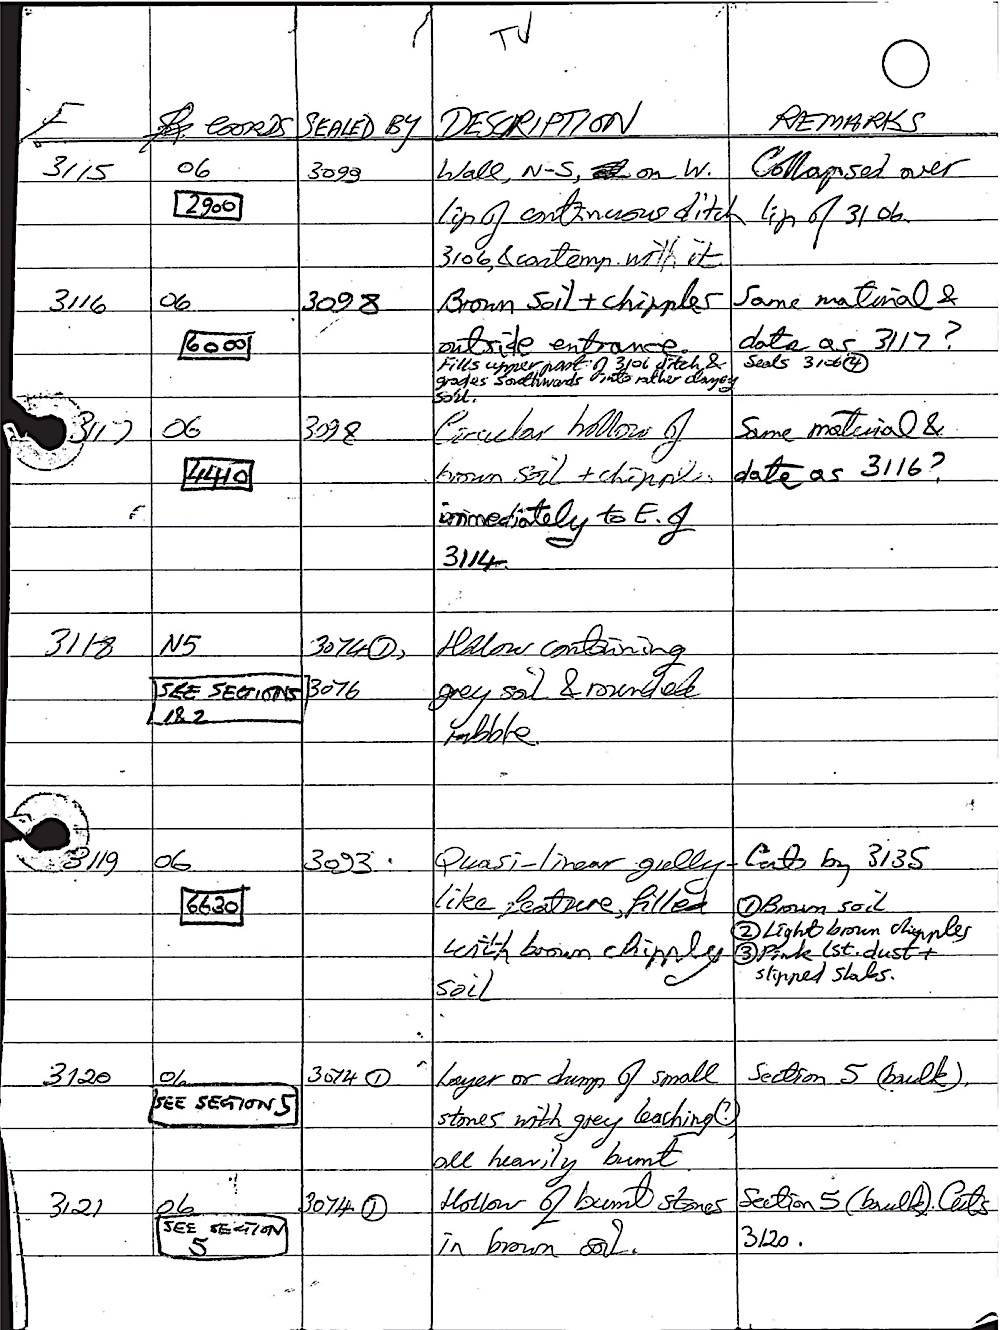 TV
F COORDS SEALED BY DESCRIPTION REMARKS
3115 06 3099 Wall, N-S, on W. Collapsed over
2900 lip of continuous ditch lip of 3106.
3106, & contemp. with it.
3116 06 3098 Brown soil + chipples Same material &
6000 outside entrance. date as 3117?
Fills upper part of 3106 ditch & Seals 3106④
grades southwards into rather clayey
soil.
3117 06 3098 Circular hollow of Same material &
4410 brown soil + chipples date as 3116?
immediately to E. of
3114.
3118 N5 3074①, Hollow containing
SEE SECTIONS 3076 grey soil & rounded
1&2 rubble.
3119 06 3093. Quasi-linear gully- Cuts by 3135
6630 like feature, filled ①Brown soil
②Light brown chipples
with brown chipply ③Pink lst. dust +
soil slipped slabs.
3120 06 3074① Layer or dump of small Section 5 (baulk).
SEE SECTION 5 stones with grey leaching(?)
all heavily burnt
3121 06 3074① Hollow of burnt stones Section 5 (baulk). Cuts
SEE SECTION in brown soil. 3120.
5